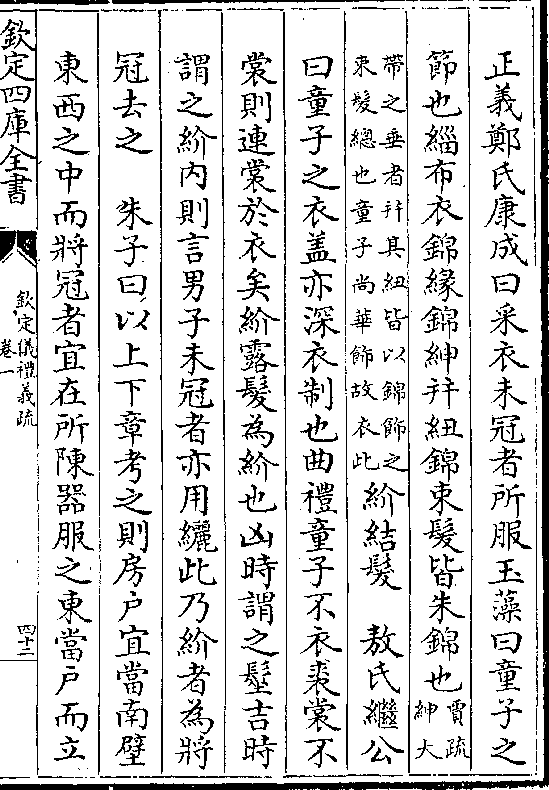 正義鄭氏康成曰采衣未冠者所服玉藻曰童子之
節也緇布衣錦緣錦紳幷紐錦束髮皆朱錦也賈疏紳大
帶之垂者幷其紐皆以錦飾之束髮總也童子尚華飾故衣此紒結髮　敖氏繼公
曰童子之衣盖亦深衣制也曲禮童子不衣裘裳不
裳則連裳於衣矣紒露髮為紒也凶時謂之髽吉時
謂之紒內則言男子未冠者亦用纚此乃紒者為將
冠去之　朱子曰以上下章考之則房户宜當南壁
東西之中而將冠者宜在所陳器服之東當户而立
欽定四庫全書
欽定儀禮義疏
卷一
四十二